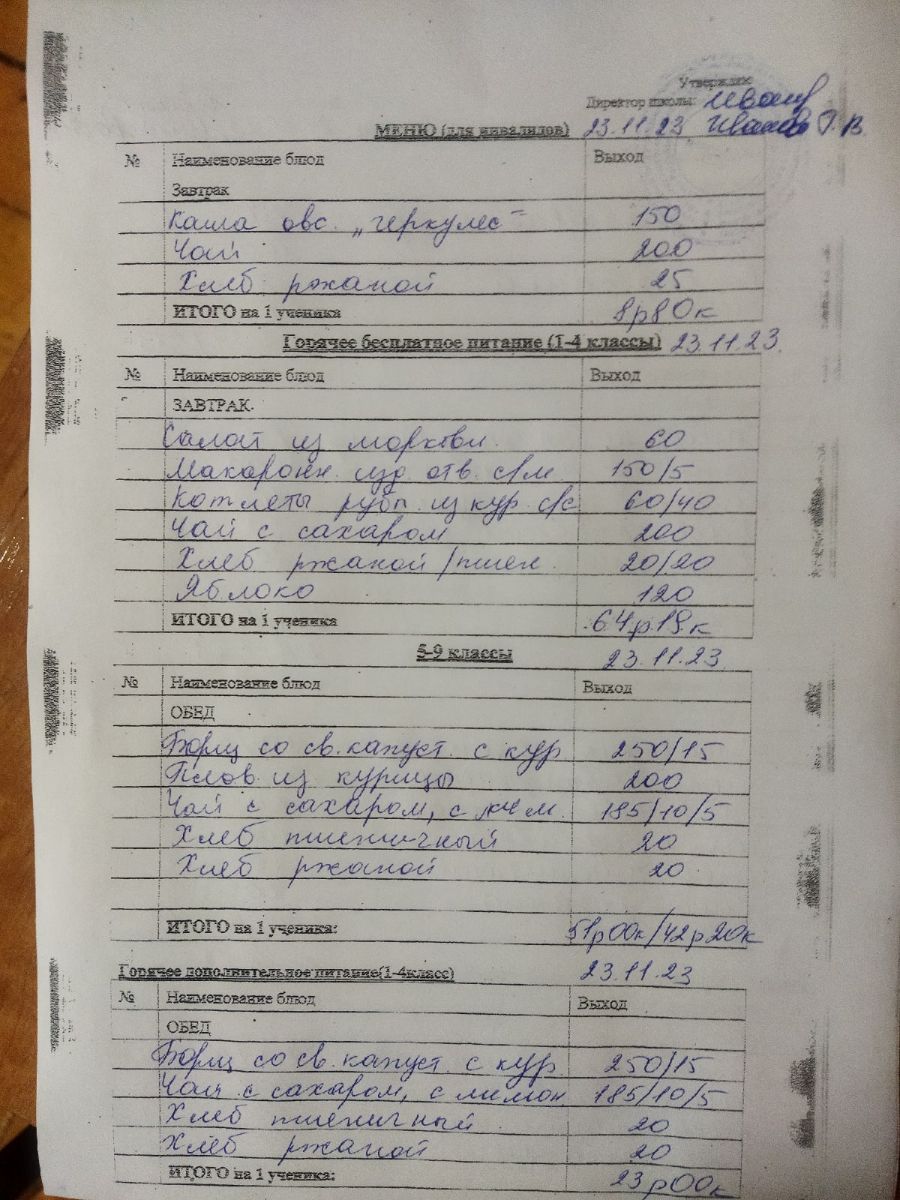 Утверждаю
Директор школы:
МЕНЮ (для инвалидов) 23.11.23
№ Наименование блюд Выход
Завтрак
Каша овс. „геркулес" 150
Чай 200
Хлеб ржаной 25
ИТОГО на 1 ученика 8р80к
Горячее бесплатное питание (1-4 классы) 23.11.23.
№ Наименование блюд Выход
ЗАВТРАК.
Салат из моркови 60
Макарон. изд. отв. с/м 150/5
Котлеты рубл. из кур. с/с 60/40
Чай с сахаром 200
Хлеб ржаной/пшен. 20/20
Яблоко 120
ИТОГО на 1 ученика 64р19к
5-9 классы 23.11.23
№ Наименование блюд Выход
ОБЕД
Борщ со св. капуст. с кур 250/15
Плов из курицы 200
Чай с сахаром, с 185/10/5
Хлеб пшеничный 20
Хлеб ржаной 20
ИТОГО на 1 ученика: 51р00к/42р20к
Горячее дополнительное питание(1-4класс) 23.11.23
№ Наименование блюд Выход
ОБЕД
Борщ со св. капуст. с кур. 250/15
Чай с сахаром, с лимон 185/10/5
Хлеб пшеничный 20
Хлеб ржаной 20
ИТОГО на 1 ученика: 23р00к